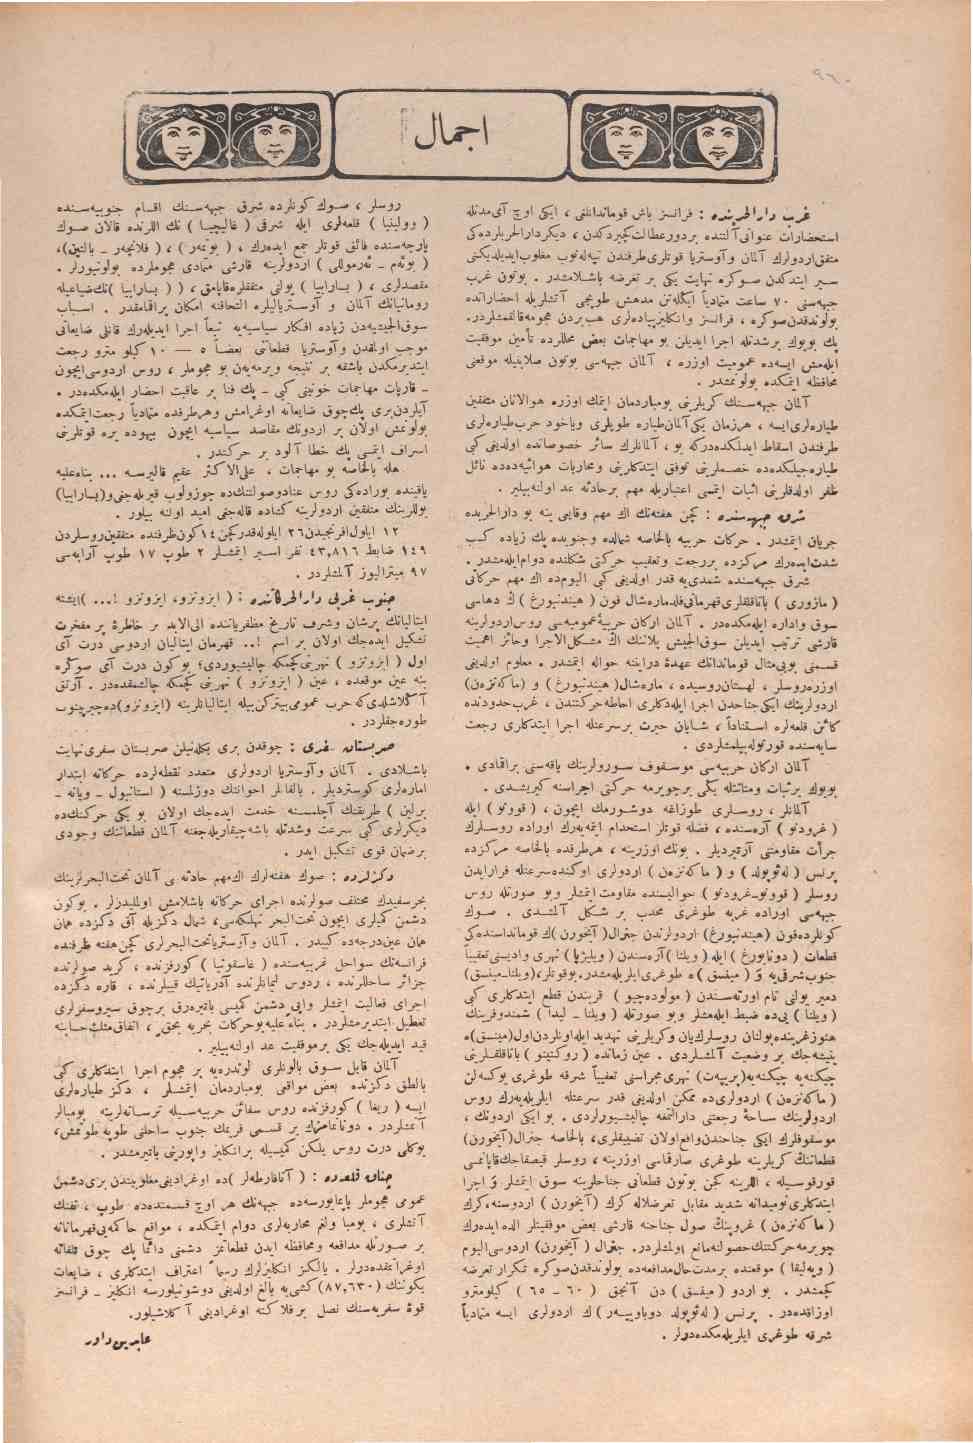 اجمال
غرب دارالحربنده : فرانسز باش قومانداننلغی ، ایكی اوچ آی مدتله
استحضارات عنوانی آلتنده بردور عطالت كچیردكدن ، دیكر دارالحربلرده كی
متفق اردولرك آلمان وآوستریا قوتلری طرفندن تپه‌له‌نوب مغلوب ایدیلدیكنی
سیر ایتدكدن صوكره نهایت یكی بر تعرضه باشلامشدر . بوتون غرب
جبهه‌سنی ۷۰ ساعت متمادیاً ایكله‌تن مدهش طوپجی آتشلریله احضاراتده
بولوندقدن صوكره ، فرانسز وانكلیز پیاده‌لری هب بردن هجومه قالقمشلردر.
پك بویوك برشدتله اجرا ایدیلن بو مهاجمات بعض محللرده تأمین موفقیت
ایله‌مش ایسه‌ده عمومیت اوزره ، آلمان جبهه‌سی بوتون صلابتیله موقعنی
محافظه ایتمكده بولونمشدر .
آلمان جبهه‌سنك كریلرینی بومباردمان ایتمك اوزره هوالانان متفقین
طیاره‌لری ایسه ، هرزمان یكی آلمان طیاره طوپلری ویاخود حرب طیاره‌لری
طرفندن اسقاط ایدلمكده‌دركه بو ، آلمانلرك سائر خصوصاتده اولدینی كبی
طیاره‌جیلكده‌ده خصملرینی توفق ایتدكلرینی ومحاربات هوائیه‌ده‌ده نائل
ظفر اولدقلرینی اثبات ایتمسی اعتباریله مهم برحادثه عد اولنه‌بیلیر .
شرق جبهه‌سنده : كچن هفته‌نك اك مهم وقایعی ینه بو دارالحربده
جریان ایتمشدر . حركات حربیه بالخاصه شمالده وجنوبده پك زیاده كسب
شدت ایده‌رك مركزده بررجعت وتعقیب حركتی شكلنده دوام ایله‌مشدر .
شرق جبهه‌سنده شمدی‌یه قدر اولدینی كبی الیوم‌ده اك مهم حركاتی
( مازوری ) باتاقلقلری قهرمانی فلدماره‌شال فون ( هیندنبورغ ) ك دهاسی
سوق واداره ایله‌مكده‌در . آلمان اركان حربیۀ عمومیه‌سی روس اردولرینه
قارشی ترتیب ایدیلن سوق‌الجیش پلاننك اك مشكل‌الاجرا وحائز اهمیت
قسمنی بوبی‌مثال قوماندانك عهدۀ درایتنه حواله ایتمشدر . معلوم اولدینی
اوزره روسلر ، لهستان روسیده ، ماره‌شال ( هیندنبورغ ) و ( ماكه‌نزه‌ن )
اردولرینك ایكی جناحدن اجرا ایله‌دكلری احاطه حركتندن ، غرب حدودنده
كائن قلعه‌لره استناداً ، شایان حیرت برسرعتله اجرا ایتدكلری رجعت
سایه‌سنده قورتوله‌بیلمشلردی .
آلمان اركان حربیه‌سی موسقوف سورولرینك یاقه‌سنی براقمادی .
بویوك برثبات ومتانتله یكی برچویرمه حركتی اجراسنه كیریشدی .
آلمانلر ، روسلری طوزاغه دوشورمك ایچون ، ( قوونو ) ایله
( غرودنو ) آره‌سنده ، فضله قوتلر استخدام ایتمیه‌رك اوراده روسلرك
جرأت مقاومتنی آرتیردیلر . بونك اوزرینه ، هرطرفده بالخاصه مركزده
پرنس ( له‌ئوپولد ) و ( ماكه‌نزه‌ن ) اردولری اوكنده سرعتله فرار ایدن
روسلر ( قوونو ـ غرودنو ) حوالیسنده مقاومت ایتمشلر وبو صورتله روس
جبهه‌سی اوراده غربه طوغری محدب بر شكل آلمشدی . صوك
كونلرده فون ( هیندنبورغ ) اردولرندن جنرال ( آیخورن ) ك قومانداسنده كی
قطعات ( دونابورغ ) ایله ( ویلنا ) آره‌سندن ( ویلیژیا ) نهری وادیسنی تعقیباً
جنوب شرقی‌یه و ( مینسق ) ه طوغری ایلریله‌مشلدر. بوقوتلر، (ویلنا ـ مینسق )
دمیر یولنی تام اورته‌سندن ( مولوده‌چیو ) قربندن قطع ایتدكلری كبی
( ویلنا ) یی‌ده ضبط ایله‌مشلر وبو صورتله ( ویلنا ـ لیدا ) شمندوفرینك
هنوز غربنده بولنان روسلرك یان وكریلرینی تهدید ایله اونلردن اول ( مینسق ) ه
یتیشه‌جك بر وضعیت آلمشلردی . عین زمانده ( روكیتنو ) باتاقلقلرینی
چیكنه‌یه چیكنه‌یه ( پریپه‌ت ) نهری مجراسنی تعقیباً شرقه طوغری یوكسه‌لن
( ماكه‌نزه‌ن ) اردولری‌ده ممكن اولدینی قدر سرعتله ایلریله‌یه‌رك روس
اردولرینك ساحۀ رجعتنی دارالتمغه چالیشیورلردی . بو ایكی اردونك ،
موسقوفلرك ایكی جناحندن واقع اولان تضییقلری، بالخاصه جنرال (آیخورن)
قطعاتنك كریلرینه طوغری صارقماسی اوزرینه ، روسلر قیصقاجك قاپانمسی
قورقوسیله ، اللرینه كچن بوتون قطعاتی جناحلرینه سوق ایتمشلر و اجرا
ایتدكلری نومیدانه شدید مقابل تعرضلاله كرك ( آیخورن ) اردوسنه، كرك
( ماكه‌نزه‌ن ) غروپنك صول جناحنه قارشی بعض موفقیتلر الده ایده‌رك
چویرمه حركتنك حصولنه مانع اولمشلردر. جنرال ( آیخورن) اردوسی الیوم
( ویله‌یقا ) موقعنده برمدت حال مدافعه‌ده بولوندقدن صوكره تكرار تعرضه
كچمشدر . بو اردو ( مینسق ) دن آنجق ( ۶۰ ـ ۶۵ ) كیلومترو
اوزاقده‌در . پرنس ( له‌ئوپولد دوباویه‌ر ) ك اردولری ایسه متمادیاً
شرقه طوغری ایلریله‌مكده‌درلر .
روسلر ، صوك كونلرده شرق جبهه‌سنك اقسام جنوبیه‌سنده
( وولینیا ) قلعه‌لری ایله شرقی ( غالیچیا ) نك اللرنده قالان صوك
پارچه‌سنده فائق قوتلر جمع ایده‌رك ، ( بوتمه‌ر ) ، ( فلانچه‌ر ـ بالتین )،
( بوئه‌م ـ ئه‌رموللی ) اردولرینه قارشی متمادی هجوملرده بولونیورلر .
مقصدلری ، ( بسارابیا ) یولنی متفقلره قاپامق ، ( بسارابیا ) نك ضیاعیله
رومانیانك آلمان و آوستریالیلره التحاقنه امكان براقمامقدر . اسباب
سوق‌الجیشیه‌دن زیاده افكار سیاسیه‌یه تبعاً اجرا ایدیله‌رك قانلی ضایعاتی
موجب اولمقدن وآوستریا قطعاتی بعضاً ۵ ـ ۱۰ كیلو مترو رجعت
ایتدیرمكدن باشقه بر نتیجه ویرمه‌یه‌ن بو هجوملر ، روس اردوسی ایچون
ـ قارپات مهاجمات خونینی كبی ـ پك فنا بر عاقبت احضار ایله‌مكده‌در .
آیلردن بری پك چوق ضایعاته اوغرامش وهرطرفده متمادیاً رجعت ایتمكده
بولونمش اولان بر اردونك مقاصد سیاسیه ایچون بیهوده یره قوتلرینی
اسراف ایتمسی پك خطا آلود بر حركتدر .
هله بالخاصه بو مهاجمات ، علی‌الاكثر عقیم قالیرسه ... بناءعلیه
یاقینده بوراده‌كی روس عناد وصولتنك‌ده چوزولوب قیریله‌جغی و(بسارابیا)
یوللرینك متفقین اردولرینه كشاده قاله‌جغی امید اولنه بیلور .
۱۲ ایلول افرنجیدن ۲٦ ایلوله قدر كچن ۱٤ كون ظرفنده متفقین روسلردن
۱٤۹ ضابط ٤۳٫۸۱٦ نفر اسیر ایتمشلر ۲ طوپ ۱۷ طوپ آرابه‌سی
۹۷ میترالیوز آلمشلردر .
جنوب غربی دارالحركاتنده : ( ایزونزو، ایزونزو !... ) ایشته
ایتالیانك پرشان وشرف تاریخ مظفریاتنده الی‌الابد بر خاطرۀ پر مفخرت
تشكیل ایده‌جك اولان بر اسم !.. قهرمان ایتالیان اردوسی درت آی
اول ( ایزونزو ) نهرینی كچمكه چالیشیوردی؛ بوكون درت آی صوكره
ینه عین موقعده ، عین ( ایزونزو ) نهرینی كچمكه چالشمقده‌در . آرتق
آكلاشلدی كه حرب عمومی بیتركن بیله ایتالیانلرینه (ایزونزو)ده چیرپینوب
طوره‌جقلردر .
صربستان سفری : چوقدن بری بكله‌نیلن صربستان سفری نهایت
باشلادی . آلمان وآوستریا اردولری متعدد نقطه‌لرده حركاته ابتدار
اماره‌لری كوستردیلر . بالقانلر احوالنك دوزلمسنه ( استانبول ـ ویانه ـ
برلین ) طریقنك آچلمسنه خدمت ایده‌جك اولان بو یكی حركتك‌ده
دیكرلری كبی سرعت وشدتله باشه چیقاریله‌جغنه آلمان قطعاتنك وجودی
برضمان قوی تشكیل ایدر .
دكزلرده : صوك هفته‌لرك اك مهم حادثه‌سی آلمان تحت‌البحرلرینك
بحرسفیدك مختلف صولرنده اجرای حركاته باشلامش اولملریدر . بوكون
دشمن كمیلری ایچون تحت‌البحر تهلكه‌سی، شمال دكزیله آق دكزده همان
همان عین درجه‌ده كبیدر . آلمان وآوستریا تحت‌البحرلری كچن هفته ظرفنده
فرانسه‌نك سواحل غربیه‌سنده ( غاسقونیا ) كورفزنده ، كرید صولرنده
جزائر ساحللرنده ، ردوس لیمانلرنده آدریاتیك قیبلرنده ، قاره دكزده
اجرای فعالیت ایتمشلر وایی دشمن كمیسی باتیره‌رق برچوق سیروسفرلری
تعطیل ایتدیرمشلردر . بناءً علیه بوحركات بحریه بحق ، اتفاق مثلث حسابنه
قید ایدیله‌جك یكی بر موفقیت عد اولنه‌بیلیر.
آلمان قابل سوق بالونلری لوندره‌یه بر هجوم اجرا ایتدكلری كبی
بالطق دكزنده بعض مواقعی بومباردمان ایتمشلر ، دكز طیاره‌لری
ایسه ( ریغا ) كورفزنده روس سفائن حربیه‌سیله ترسانه‌لرینه بومبالر
آتمشلردر . دونانمامزك بر قسمی قریمك جنوب ساحلنی طوپه طوتمش،
یوكلی درت روس یلكن كمیسیله بر انكلیز واپورینی باتیرمشدر .
چناق قلعه‌ده : ( آنافارطه‌لر )ده اوغرادینی مغلوبیتدن بری دشمن
عمومی هجوملر یاپمایورسه‌ده جبهه‌نك هر اوچ قسمنده‌ده طوپ ، تفنك
آتشلری ، بومبا ولغم محاربه‌لری دوام ایتمكده ، مواقع حاكمه‌یی قهرمانانه
بر صورتله مدافعه ومحافظه ایدن قطعاتمز دشمنی دائما پك چوق تلفاته
اوغراتمقده‌درلر . یالكز انكلیزلرك رسماً اعتراف ایتدكلری ، ضایعات
یكوننك (۸۷٫٦۳۰) كشی‌یه بالغ اولدینی دوشونیلورسه انكلیز ـ فرانسز
قوۀ سفریه‌سنك نصل بر فلاكته اوغرادینی آكلاشیلور.
عابدین داور